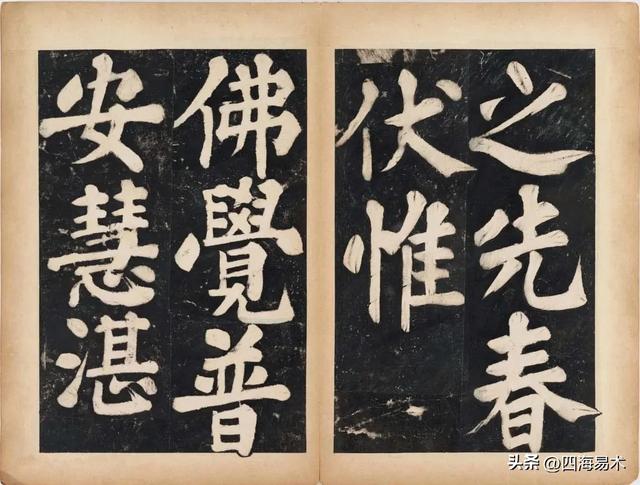 之先春
伏惟
佛覺普
安慧湛
头条 @四海易木